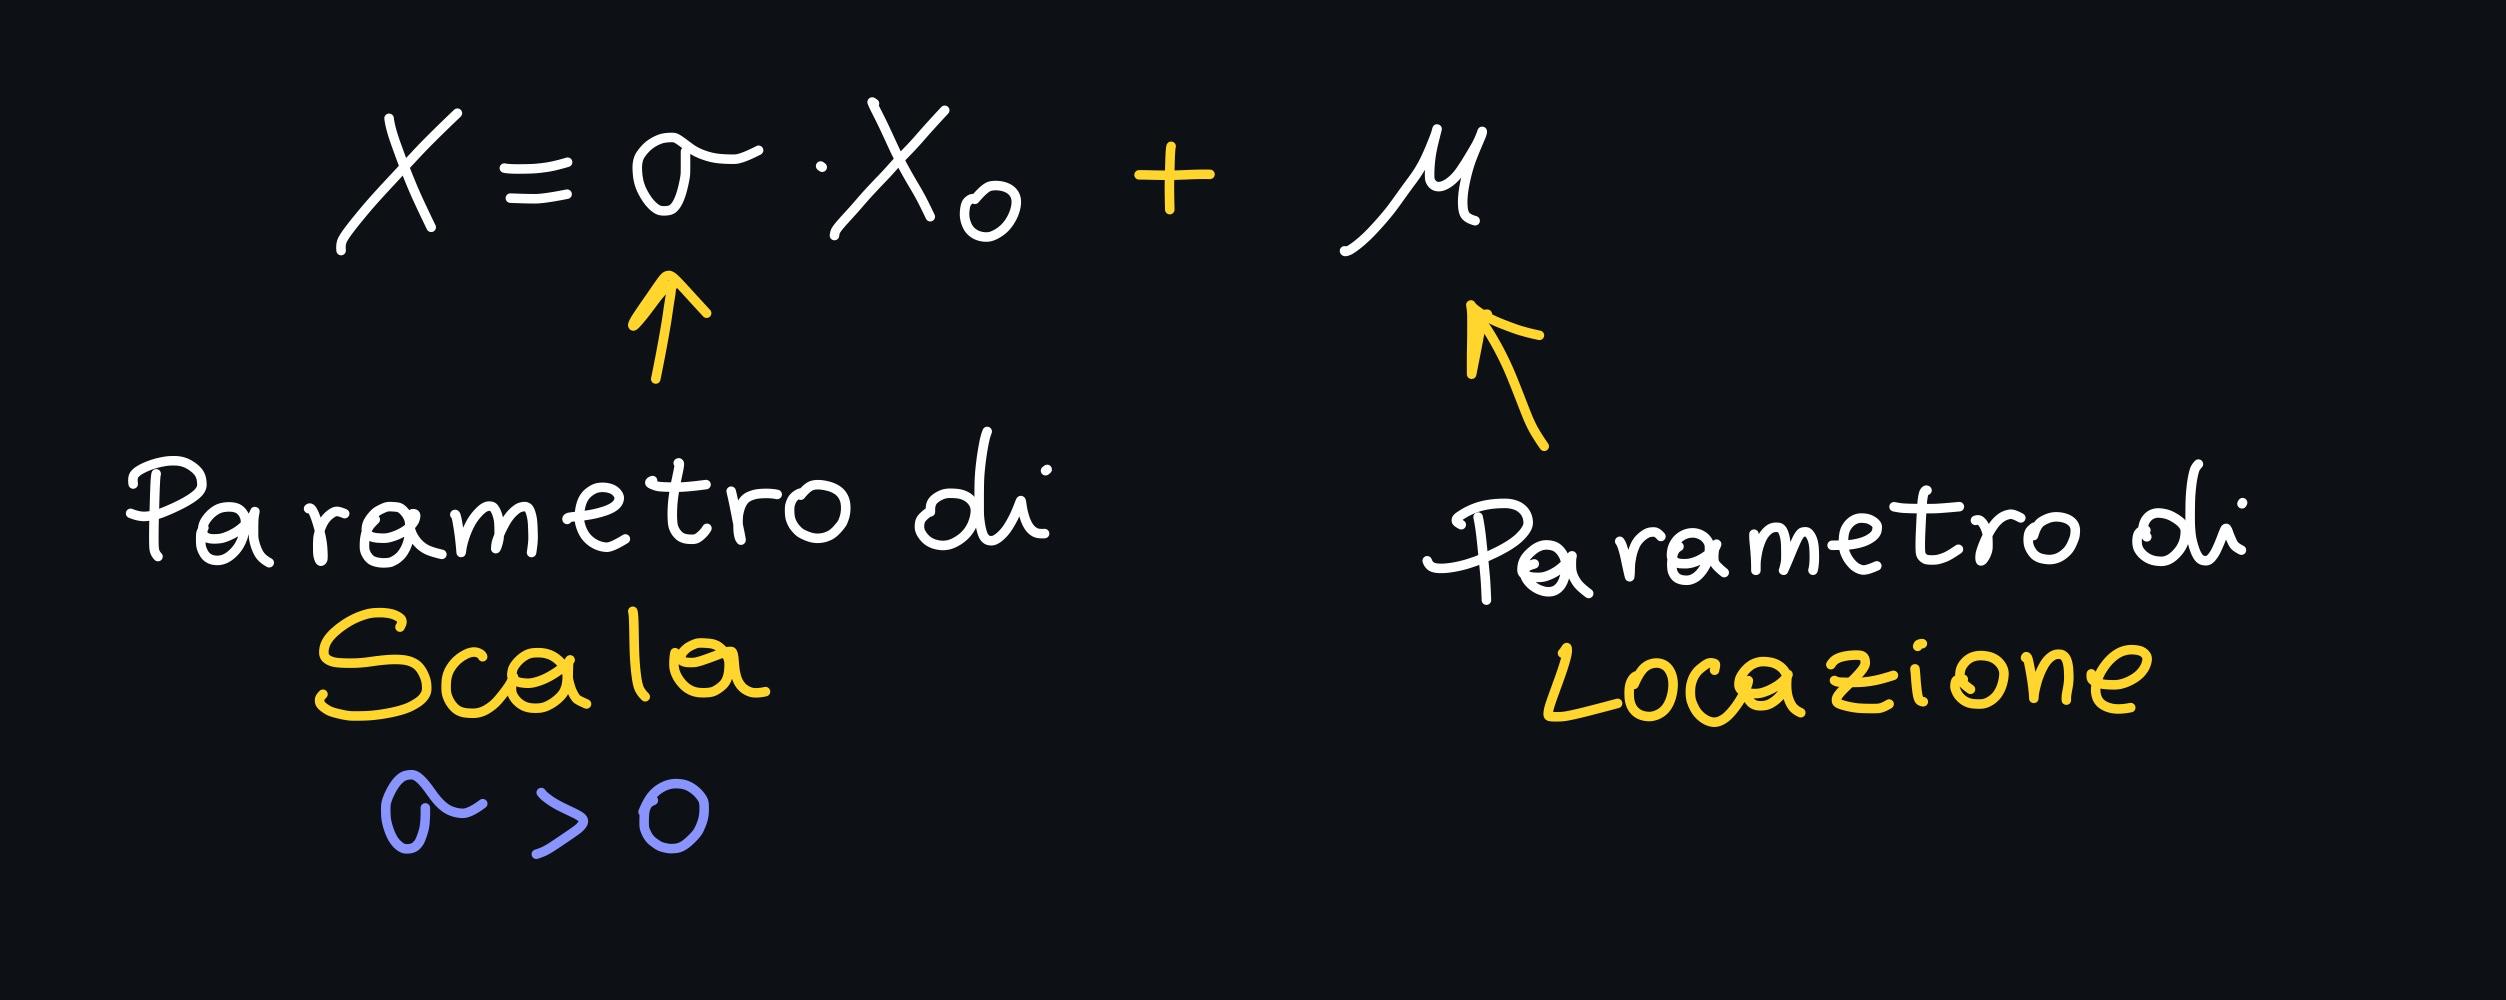 X = σ · X₀ + μ
Parametro di
Scala
σ > 0
Parametro di
Locazione